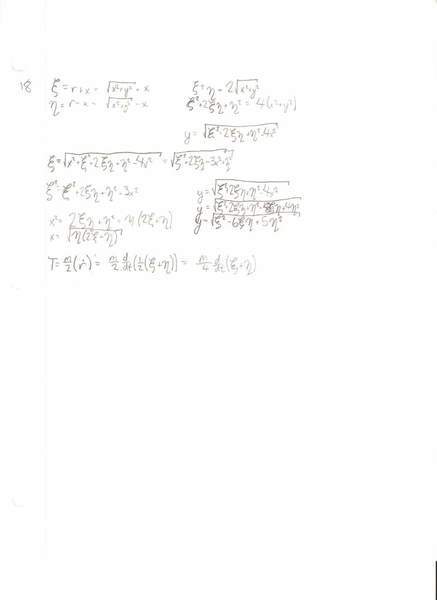 18
ξ = r+x = √(x²+y²) + x
η = r-x = √(x²+y²) - x
ξ+η = 2√(x²+y²)
ξ²+2ξη+η² = 4(x²+y²)
y = √(ξ²+2ξη+η²-4x²)
ξ = √(x²+ξ²+2ξη+η²-4x²) = √(ξ²+2ξη-3x²+η²)
ξ² = ξ²+2ξη+η²-3x²
x² = 2ξη+η² = η(2ξ+η)
x = √(η(2ξ+η))
y = √(ξ²+2ξη+η²-4x²)
y = √(ξ²-6ξη+5η²)
T = m/2(ṙ) = m/2 d/dt(1/2(ξ+η)) = m/4 d/dt(ξ+η)